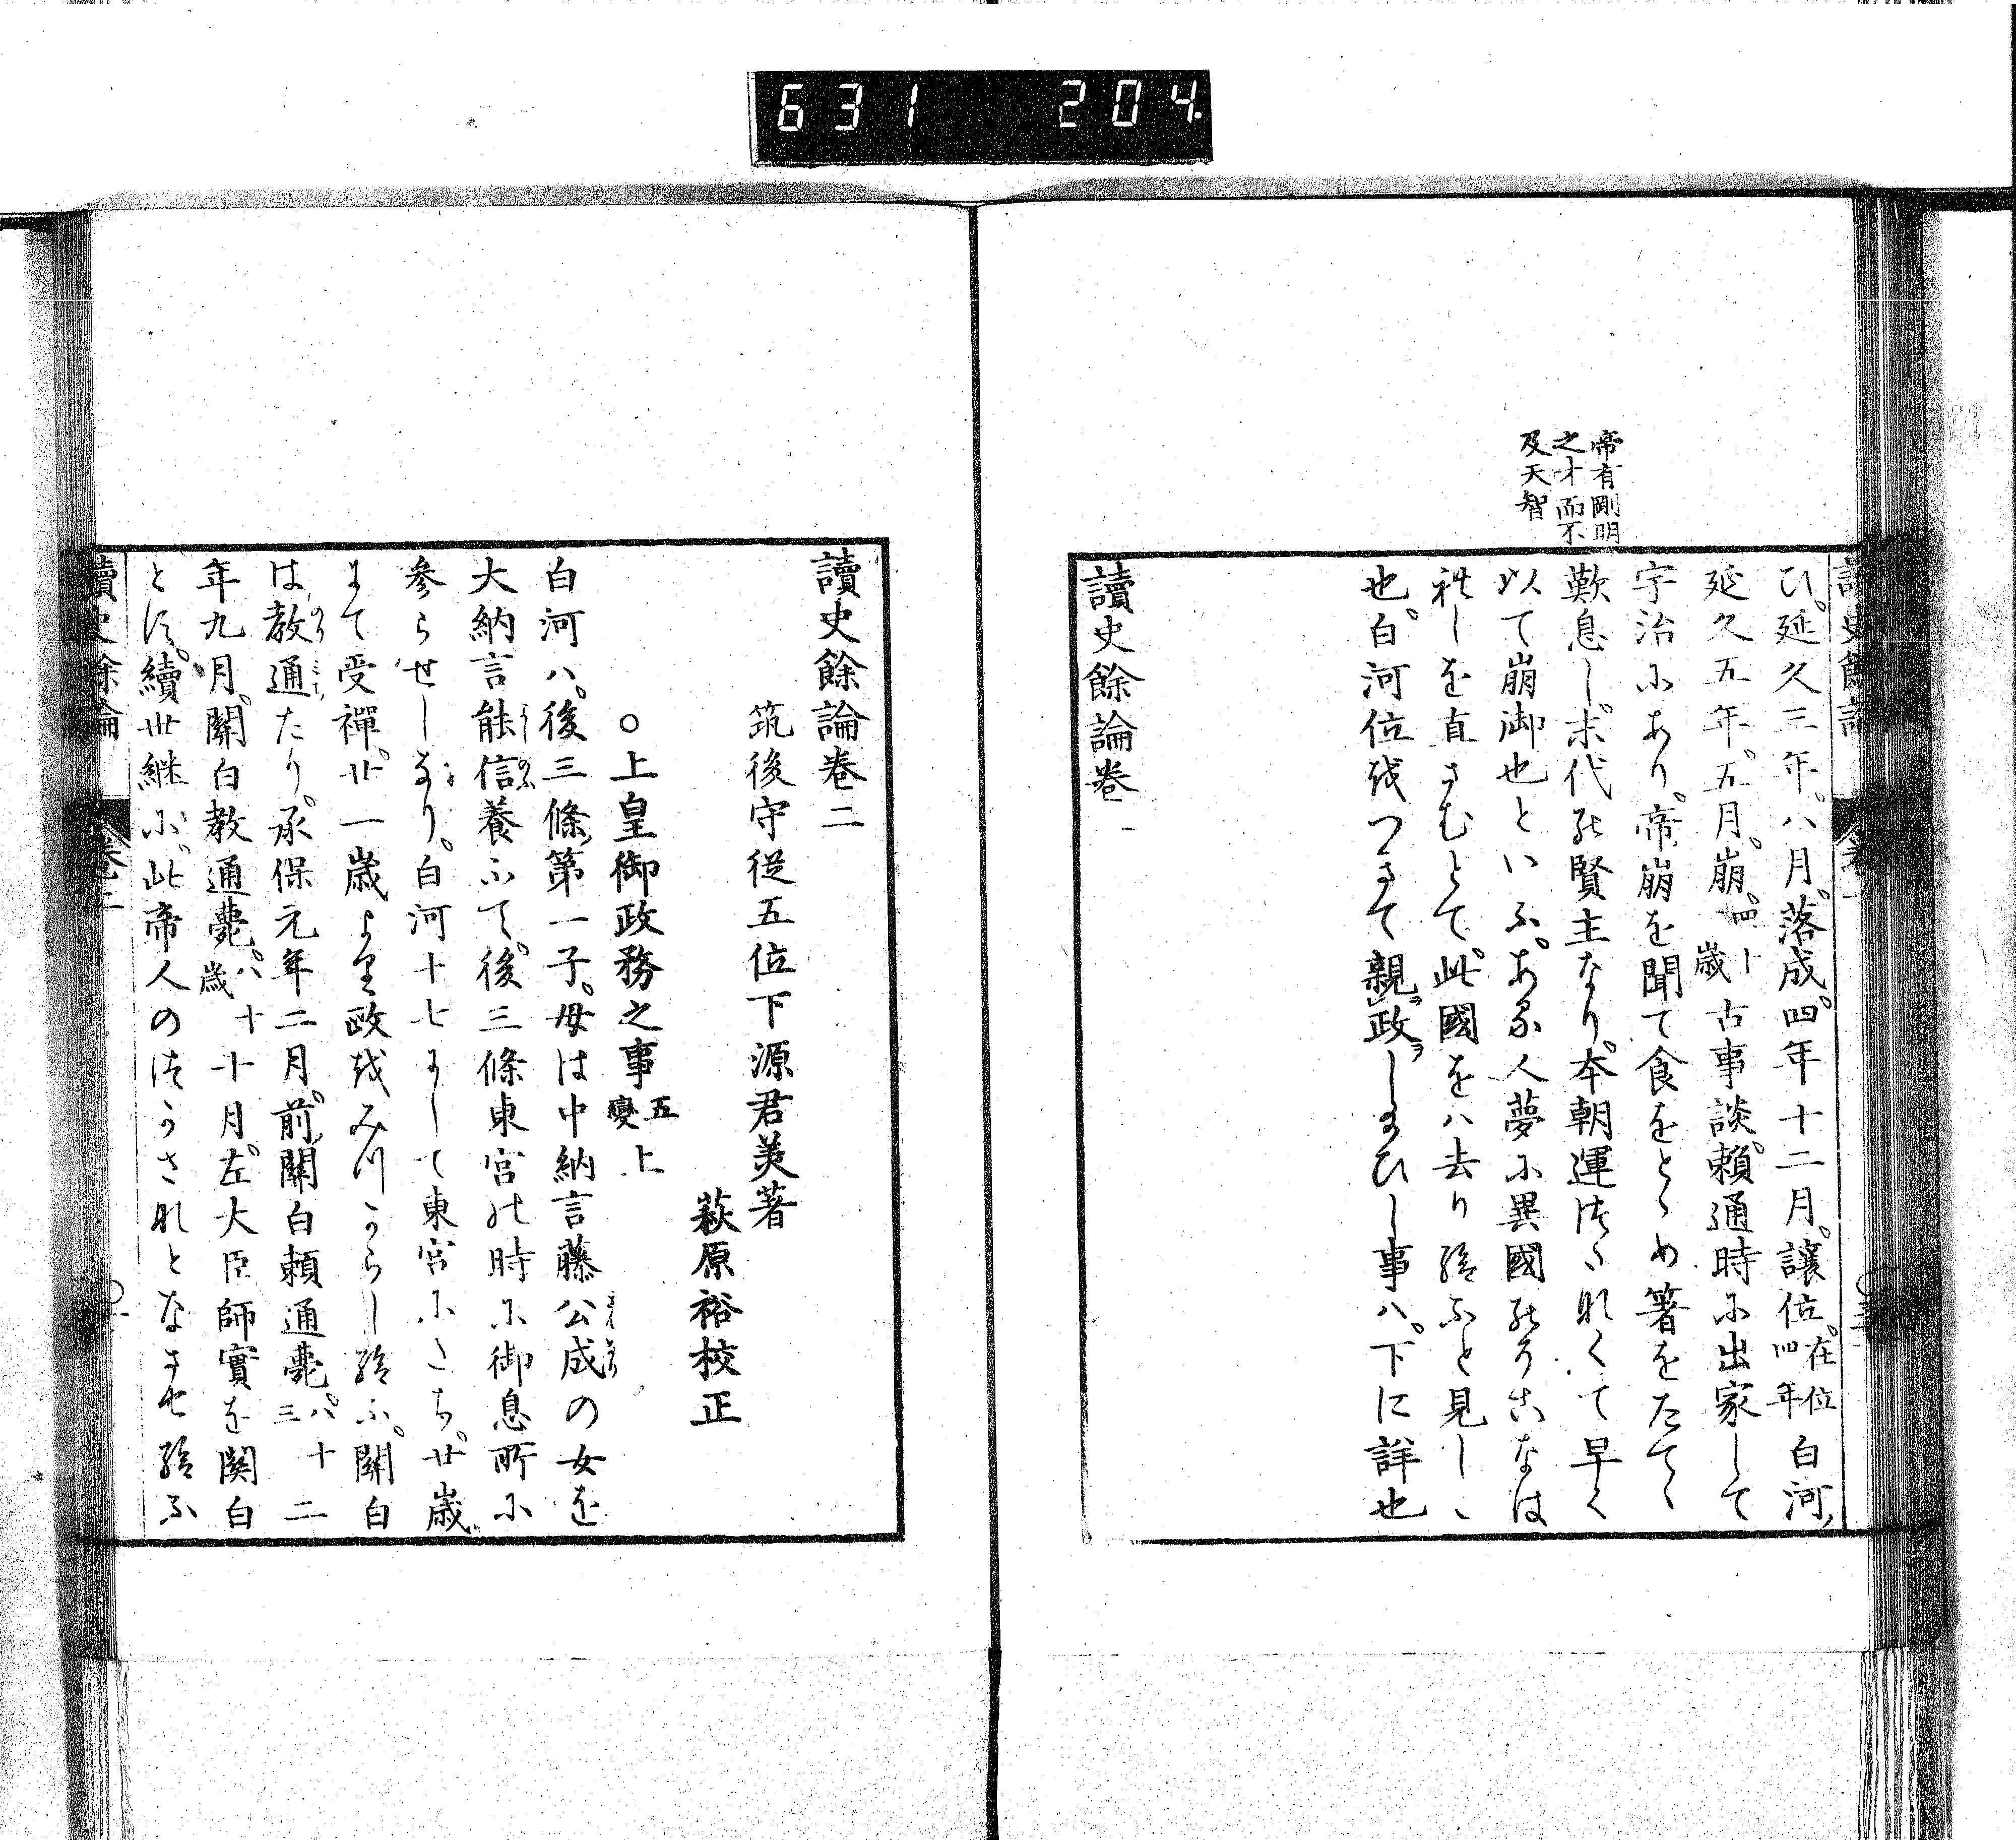 631 204
帝有剛明
之才而不
及天智
ひ。延久三年。八月。落成。四年十二月。讓位。在位四年 白河
延久五年。五月。崩。四十歳 古事談。頼通時に出家して
宇治にあり。帝崩を聞て食をとゝめ箸をたてゝ
歎息し。末代の賢主なり。本朝運つたなくて早く
以て崩御也といふ。ある人夢に異國のうちなは
れしを直さむとて。此國をは去り給ふと見しゝ
也。白河位をつきて親ヲ政ヲしまひし事ハ。下に詳也
讀史餘論卷一
讀史餘論卷二
筑後守從五位下源君美著
萩原裕校正
○上皇御政務之事 五變 上
白河ハ。後三條第一子。母は中納言藤公成の女を
大納言能信養ふて。後三條東宮の時に御息所に
参らせしなり。白河十七にして東宮にたち。廿歳
にて受禪。廿一歳より政をみつからし給ふ。關白
は教通たり。承保元年二月。前關白頼通薨。八十三 二
年九月。關白教通薨。八十歳 十月。左大臣師實を関白
とす。續世継に。此帝人のつかさなれとなさせ給ふ
讀史餘論
卷二